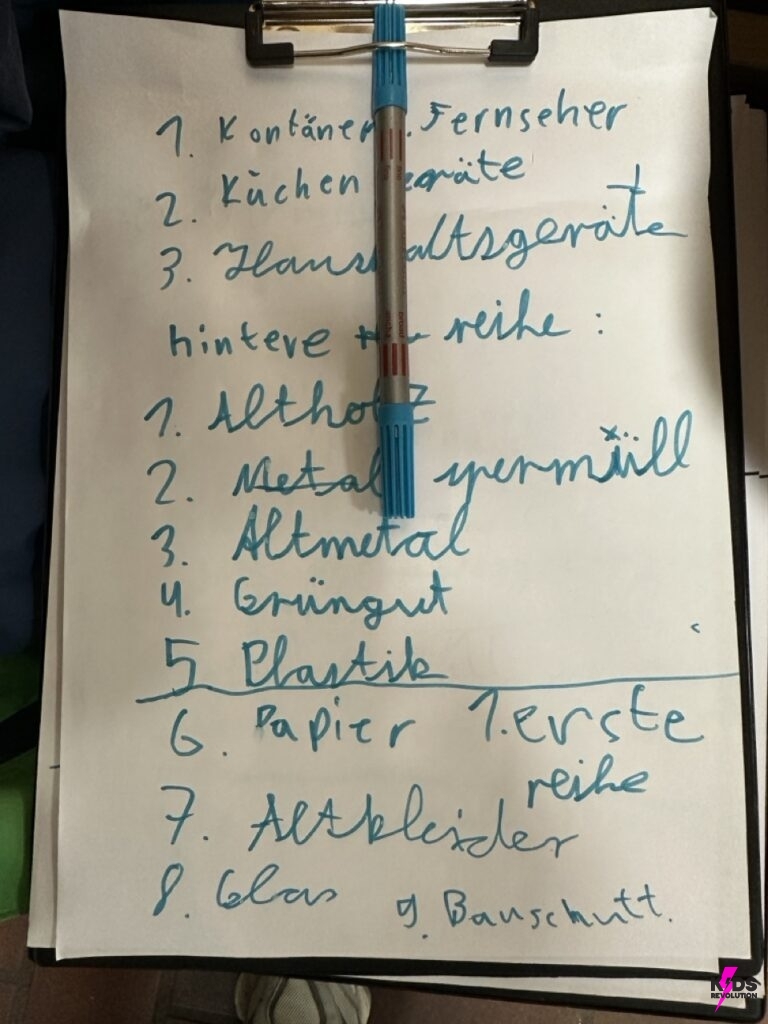 1. Kontäner. Fernseher
2. Küchen geräte
3. Haushaltsgeräte
hintere reihe :
1. Altholz
2. Metal yermüll
3. Altmetal
4. Grüngut
5 Plastik
6. Papier 1. erste
reihe
7. Altkleider
8. Glas 9. Bauschutt.
KIDS
REVOLUTION